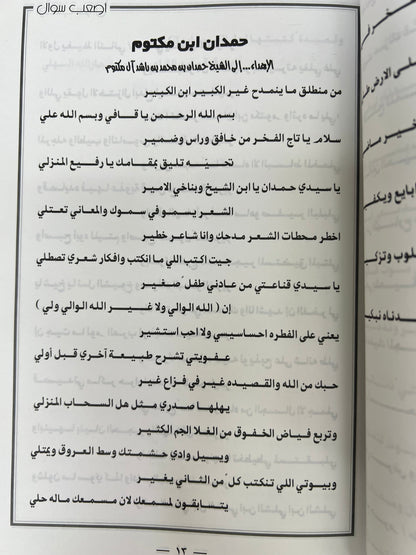 أصعب سؤال
حمدان ابن مكتوم
الإهداء... إلى الشيخ حمدان بن محمد بن راشد آل مكتوم
من منطلق ما ينمدح غير الكبير ابن الكبير
بسم الله الرحمن يا قافي وبسم الله علي
سلام يا تاج الفخر من خافق وراس وضمير
تحيّه تليق بمقامك يا رفيع المنزلي
يا سيدي حمدان يا ابن الشيخ وبناخي الامير
الشعر يسمو في سموك والمعاني تعتلي
اخطر محطات الشعر مدحك وانا شاعر خطير
جيت اكتب اللي ما انكتب وافكار شعري تصطلي
يا سيدي قناعتي من عادني طفلٍ صغير
إن ( الله الوالي ولا غير الله الوالي ولي )
يعني على الفطره احساسيسي ولا احب استشير
عفويتي تشرح طبيعة آخري قبل أولي
حبك من الله والقصيده غير في فزاع غير
يهلها صدري مثل هل السحاب المنزلي
وتربع فياض الخفوق من الغلا الجم الكثير
ويسيل وادي حشمتك وسط العروق ويمتلي
وبيوتي اللي تنكتب كلٍ من الثاني يغير
يتسابقون لمسمعك لان مسمعك ماله حلي
١٣